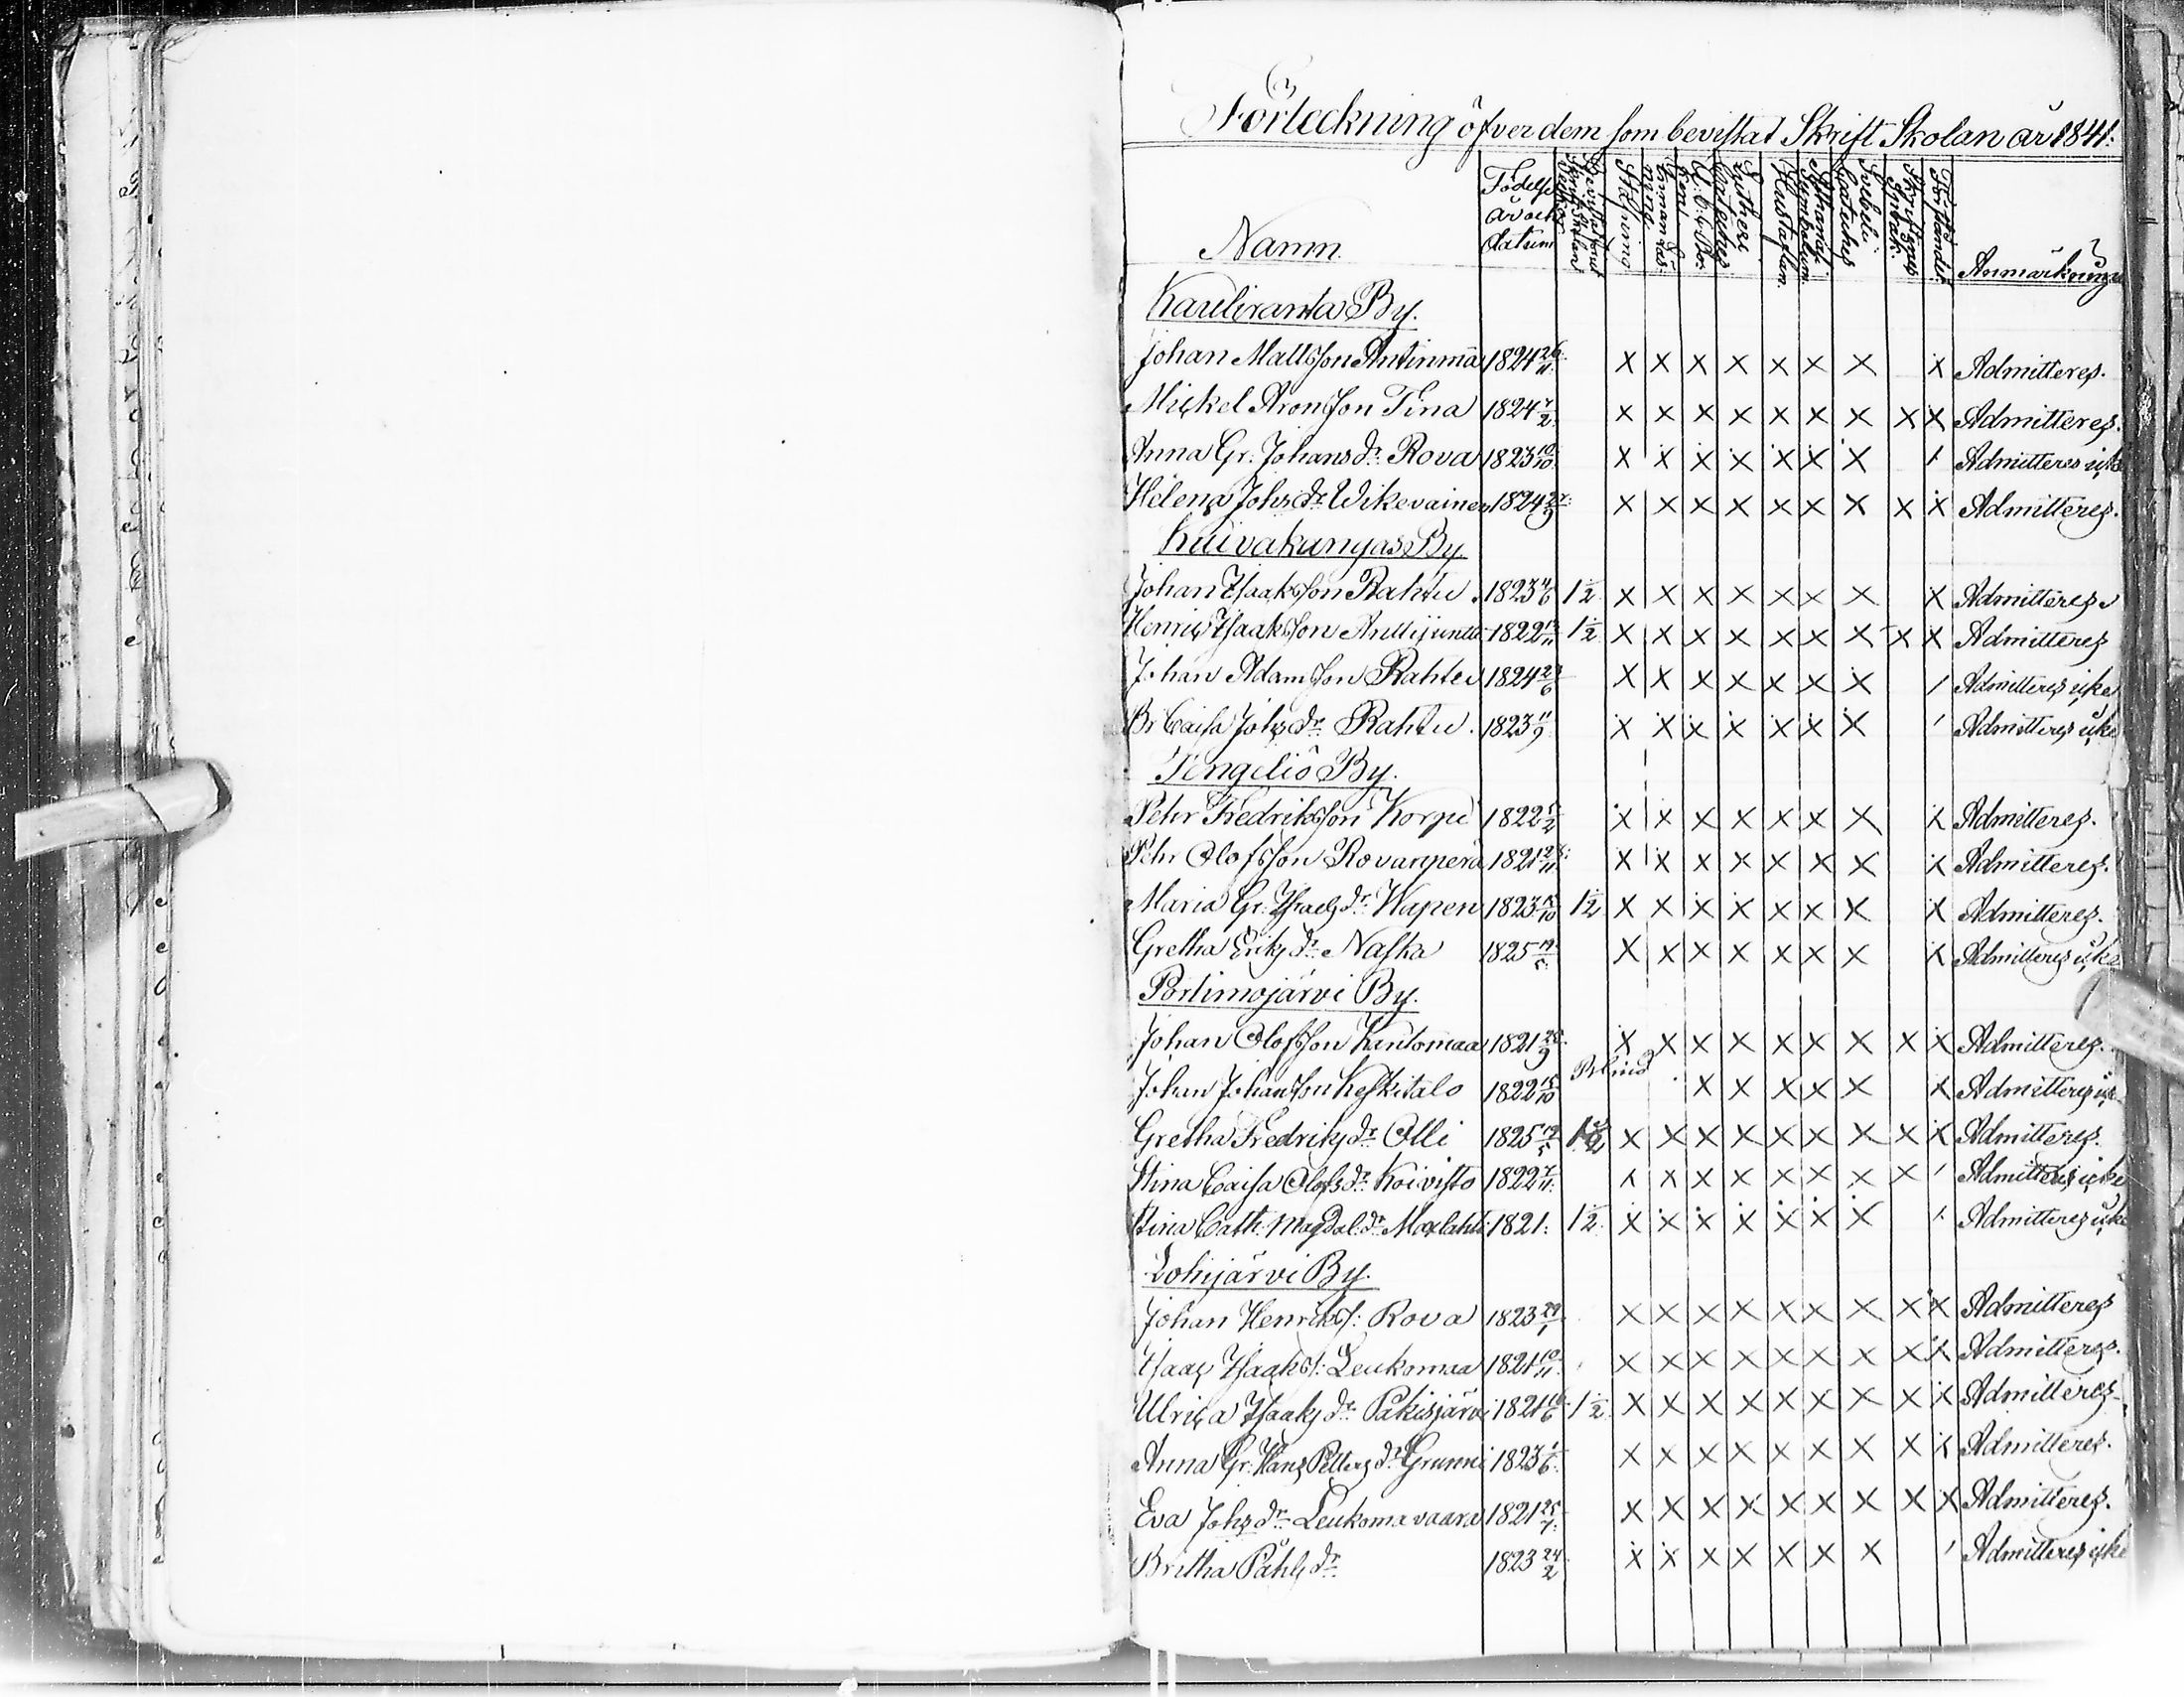 Förteckning öfver dem som bevistat Skrift Skolan år 1841.
Namn. Födelse år och datum Stafning Innanläs: A.b.c. Boken Lutheri Cateches Hustaflan Athanas: Symbolum Svebelii Cateches Förståndet Anmärkningar
Kauliranta By.
Johan Mattsson Antinmaa 1824 26/11 x x x x x x x x Admitteres.
Mickel Aronsson Tina 1824 7/2 x x x x x x x x x Admitteres.
Anna Gr: Johans dr Rova 1823 10/10 x x x x x x x / Admitteres icke
Helena Johs dr Wikevainen 1824 27/9 x x x x x x x x x Admitteres.
Kuivakangas By
Johan Isaksson Rahtu. 1823 4/6 1 1/2 x x x x x x x x Admitteres
Henric Isaksson Anttijuntti 1822 12/11 1 1/2 x x x x x x x x x Admitteres
Johan Adamsson Rahtu 1824 23/6 x x x x x x x / Admitteres icke
Br Caisa Johs dr Rahtu. 1823 11/9 x x x x x x x / Admitteres icke
Tengeliö By.
Pehr Fredriksson Korpi 1822 5/2 x x x x x x x x Admitteres.
Pehr Olofsson Rovanperä 1821 28/11 x x x x x x x x Admitteres.
Maria Gr: Israels dr Wapen 1823 15/10 1 1/2 x x x x x x x x Admitteres.
Gretha Eriks dr Naska 1825 19/5 x x x x x x x x Admitteres icke
Portimojärvi By.
Johan Olofsson Kantomaa 1821 28/9 x x x x x x x x x Admitteres.
Johan Johansson Keskitalo 1822 15/10 Blind x x x x x x Admitteres icke
Gretha Fredriks dr Olli 1825 19/5 1 1/2 x x x x x x x x x Admitteres.
Stina Caisa Olofs dr Koivisto 1822 7/11 x x x x x x x x / Admitteres icke
Stina Cath. Magdal: dr 1821: 1 1/2 x x x x x x x / Admitteres icke
Lohijärvi By.
Johan Henriks s: Rova 1823 29/1 x x x x x x x x x Admitteres
Isaac Isaks s: Leukomaa 1821 10/11 x x x x x x x x x Admitteres.
Ulrica Isaaks dr Pakisjärvi 1821 16/6 1 1/2 x x x x x x x x x Admitteres
Anna Gr: Hans Petters dr Grunni 1823 1/6 x x x x x x x x x Admitteres.
Eva Johs dr Leukomavaara 1821 25/7 x x x x x x x x x Admitteres.
Britha Påhls dr 1823 24/2 x x x x x x x / Admitteres icke